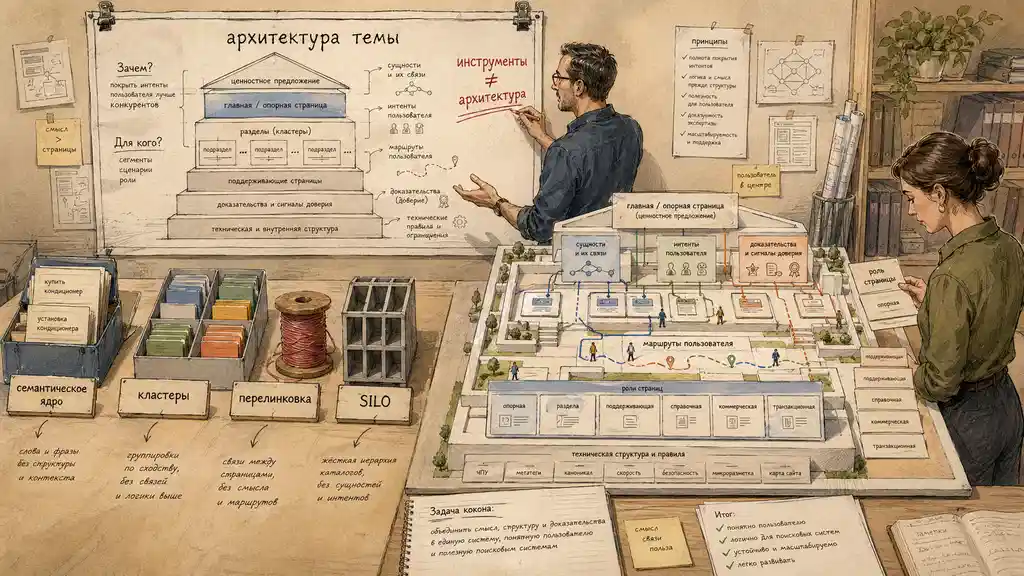 архитектура темы
Зачем?
покрыть интенты
пользователя лучше
конкурентов
Для кого?
сегменты
сценарии
роли
ценностное предложение
главная / опорная страница
разделы (кластеры)
подраздел
подраздел
подраздел
поддерживающие страницы
доказательства и сигналы доверия
техническая и внутренняя структура
сущности
и их связи
интенты
пользователя
маршруты
пользователя
доказательства
(доверие)
технические
правила и
ограничения
инструменты
≠
архитектура
смысл
>
страницы
принципы
полнота покрытия
интентов
логика и смысл
прежде структуры
полезность
для пользователя
доказуемость
экспертизы
масштабируемость
и поддержка
пользователь
в центре
купить
кондиционер
установка
кондиционера
семантическое
ядро
кластеры
перелинковка
SILO
слова и фразы
без структуры
и контекста
группировки
по сходству,
без связей
и логики выше
связи между
страницами,
без смысла
и маршрутов
жёсткая иерархия
каталогов,
без сущностей
и интентов
главная / опорная страница
(ценностное предложение)
сущности
и их связи
интенты
пользователя
доказательства
и сигналы доверия
маршруты пользователя
роли страниц
опорная
раздела
поддерживающая
справочная
коммерческая
транзакционная
техническая структура и правила
ЧПУ
метатеги
каноникал
скорость
безопасность
микроразметка
карта сайта
роль
страницы
опорная
поддерживающая
поддерживающая
справочная
коммерческая
транзакционная
Задача кокона:
объединить смысл, структуру и доказательства
в единую систему, понятную пользователю
и полезную поисковым системам
смысл
связи
польза
Итог:
✓ понятно пользователю
✓ логично для поисковых систем
✓ устойчиво и масштабируемо
✓ легко развивать